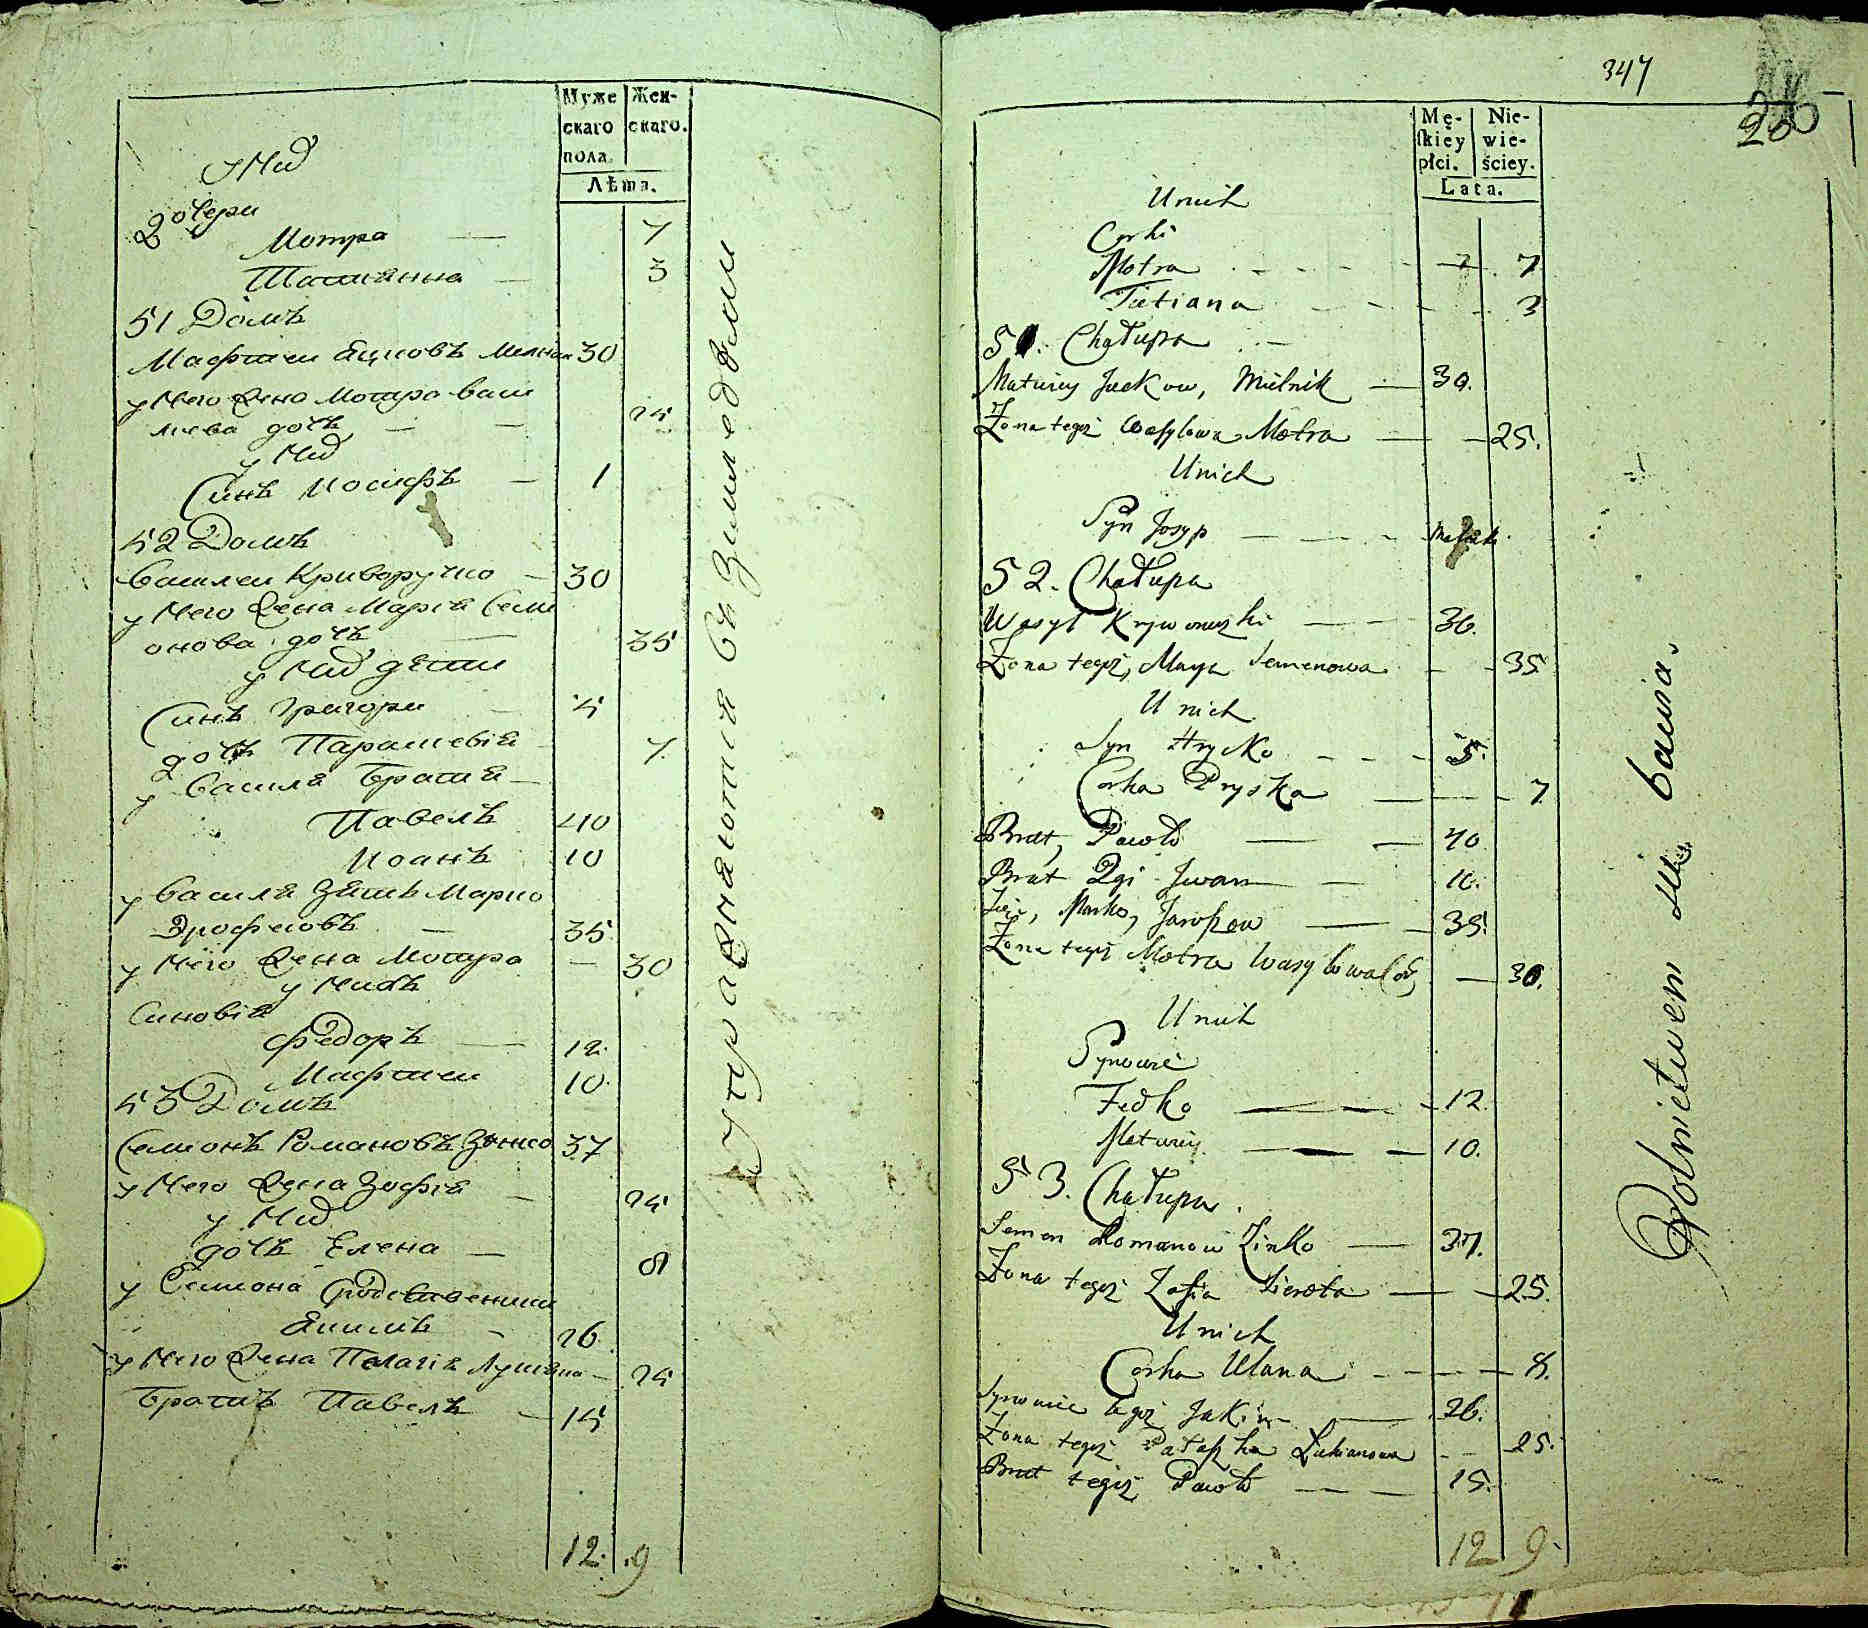 Муже
скаго
пола.
Жен-
скаго.
Лѣта.
у Нид
дочери
Мотра — 7
Татианна — 3
51 Домъ
Мафтеи Яцковъ Мелник 30
у Него жена Мотра Васи
лиева дочь — — 25
у Нид
Синъ Иосифъ — 1
52 Домъ
Василеи Криворучко — 30
у Него жена Мария Семи
онова дочь — 35
у Нид дети
Синъ Григори — 5
дочь Параскевия 7
у Василя Братия —
Павелъ 40
Иоанъ 10
у Василя Зять Марко
Ярофеовъ — 35
у Него жена Мотра — 30
у Нихъ
Синовія
Федоръ — 12
Мафтеи 10
53 Домъ
Семионъ Романовъ Зѣнко 37
у Него жена Зофія — 25
у Нид
дочь Елена — 8
у Семиона Сродственники
Якимъ — 26
у Него жена Палагія Лукяна — 25
Братъ Павелъ — 15
12. 9
Упражняются въ Земледелии
347
26
Mę-
skiey
płci.
Nie-
wie-
ściey.
Lata.
U nich
Corki
Motra - - - - 7
Tatiana - - - 3
51. Chałupa
Maturey Jackow, Mielnik — 30.
Żona tegoż Wasylowa Motra — — 25.
U nich
Syn Josyp — - - -
52. Chałupa
Wasyl Kryworuczko — — 30.
Żona tegoż, Marya Semenowa - - 35
U nich
Syn Hrycko - - - 5.
Corka Pryska — — - 7
Brat, Pawło — — 40
Brat 2gi Jwan — — 10.
Zięć, Marko, Jarofeow — — 35.
Żona tegoż Motra Wasylowa — 30.
U nich
Synowie
Fedko — — — 12.
Maturey — — — 10.
53. Chałupa.
Semen Romanow Zinko — 37.
Żona tegoż Zofia — — 25.
U nich
Corka Ulana - - — — 8.
Synowiec tegoż Jakim — 26.
Żona tegoż Pałaszka Lukianowa - - 25.
Brat tegoż Pawło — — — 15.
12 9.
Rolnictwem się bawią.